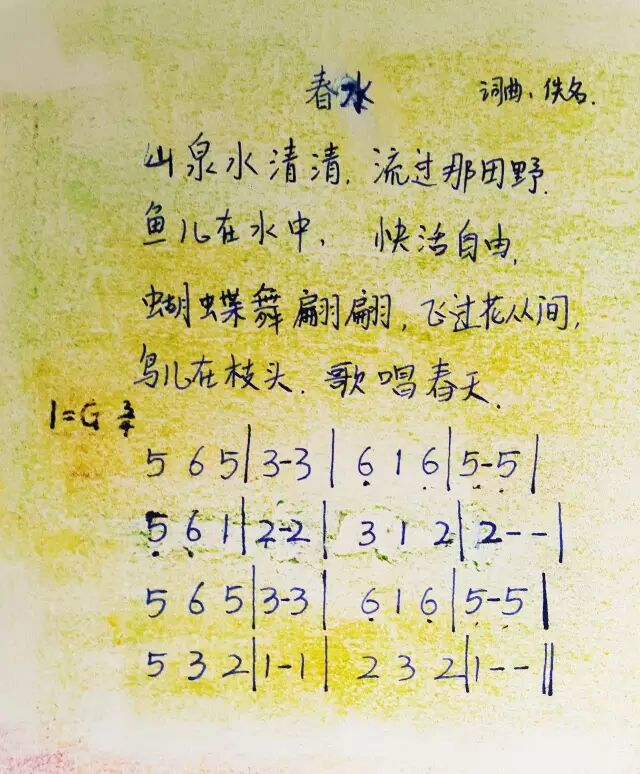 春水 词曲、佚名.
山泉水清清, 流过那田野.
鱼儿在水中, 快活自由,
蝴蝶舞翩翩, 飞过花丛间,
鸟儿在枝头. 歌唱春天.
1=G 3/4
5 6 5|3-3| 6̣ 1 6̣|5̣-5̣|
5̣ 6̣ 1|2-2| 3 1 2|2--|
5 6 5|3-3| 6̣ 1 6̣|5̣-5̣|
5 3 2|1-1| 2 3 2|1--‖